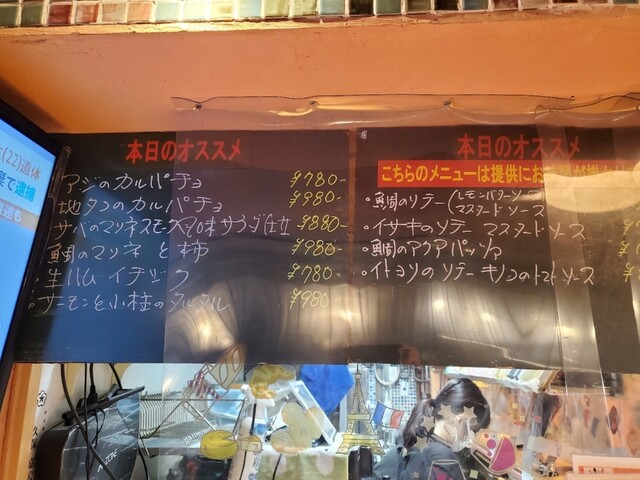 本日のオススメ
アジのカルパチョ ¥780-
地タコのカルパチョ ¥980-
サバのマリネスモーク 和風サラダ仕立 ¥880-
鯛のマリネと柿 ¥980-
・生ハム イチジク ¥780-
・サーモンと小柱のタルタル ¥980-
本日のオススメ
こちらのメニューは提供にお
・鯛のソテー(レモンバターソース
マスタードソース
・イサキのソテー マスタードソース ¥
・鯛のアクアパッツァ
・イトヨリのソテー キノコのトマトソース
(22)遺体
で逮捕